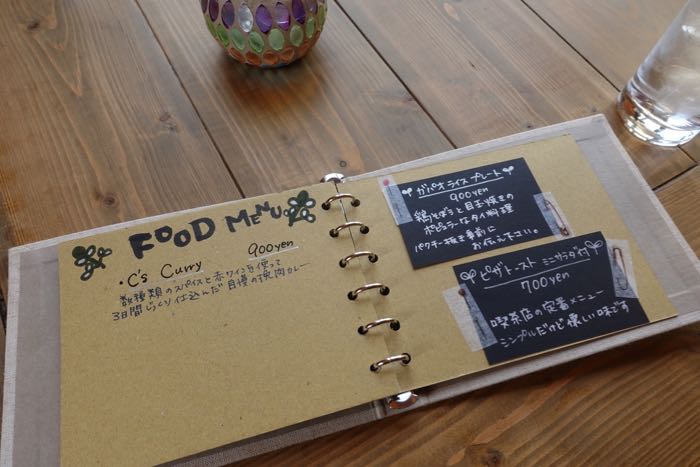 FOOD MENU
・C's Curry 900yen
数種類のスパイスと赤ワインを使って
3日間じっくり仕込んだ自慢の挽肉カレー
ガパオライスプレート
900yen
鶏そぼろと目玉焼きの
ポピュラーなタイ料理
パクチー抜き事前に
お伝え下さい。
ピザトースト ミニサラダ付
700yen
喫茶店の定番メニュー
シンプルだけど優しい味です